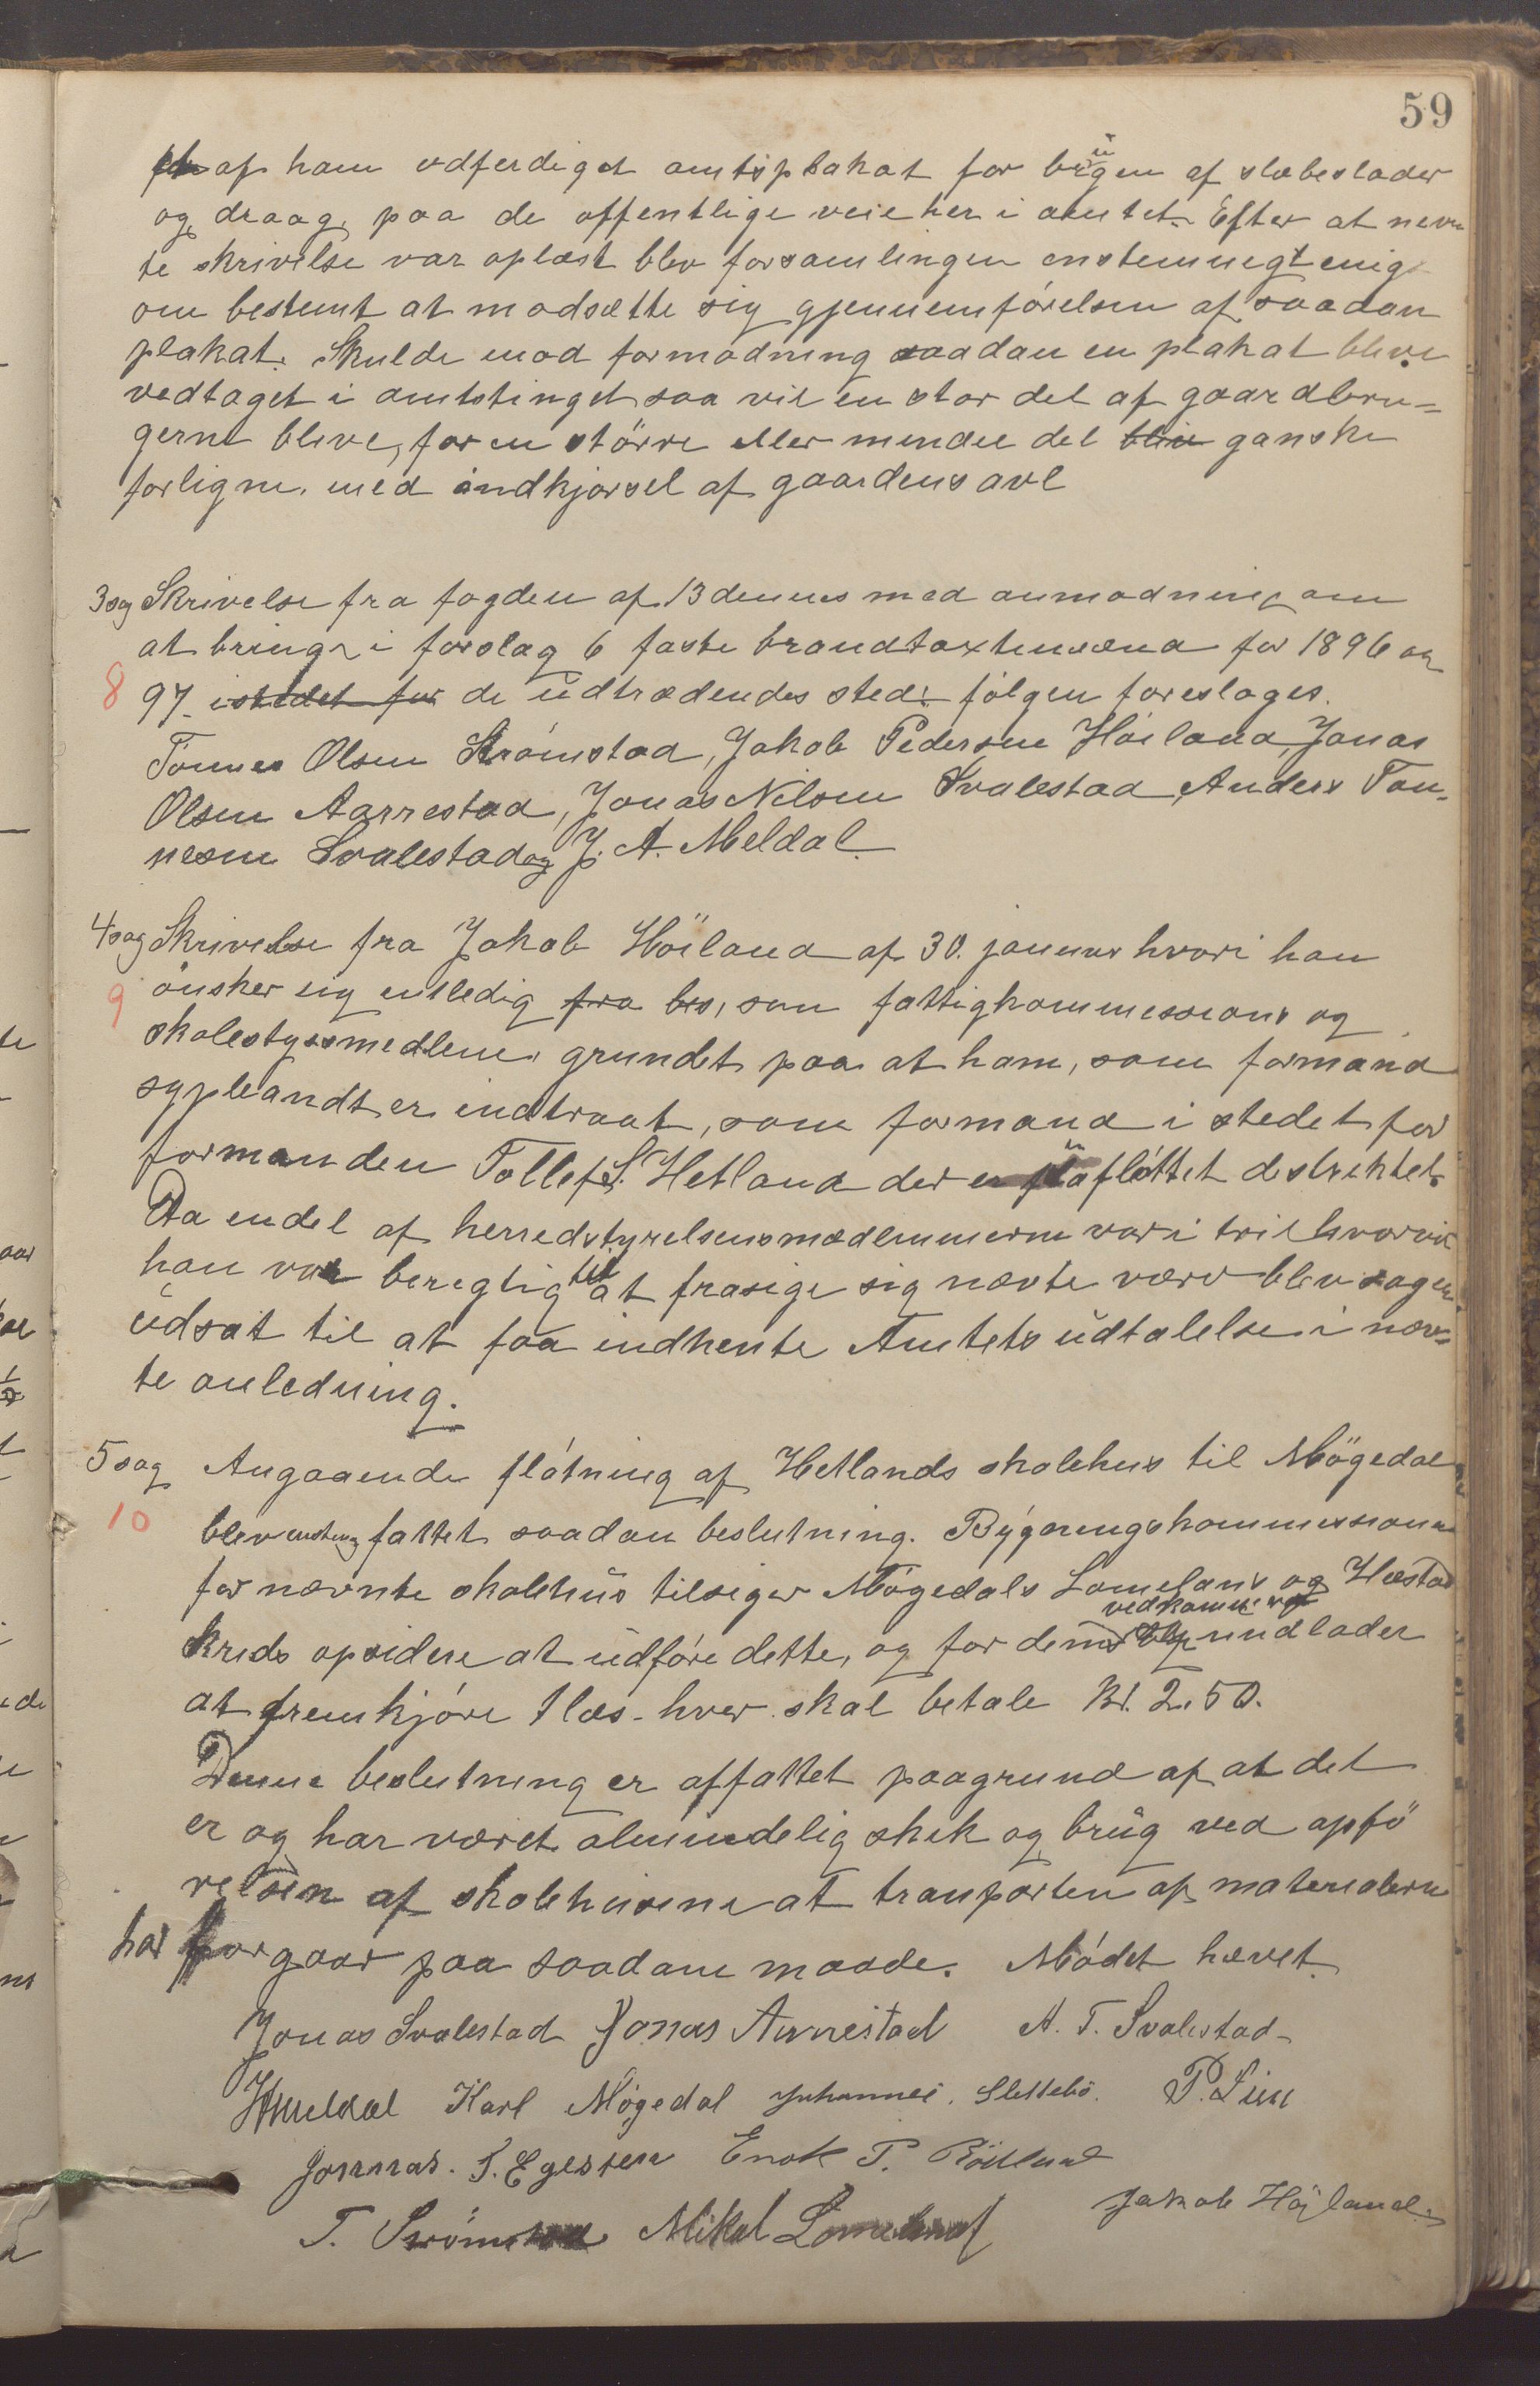 59
af ham udferdiget amtsplakat for brugen af slæbeslader
og draag, paa de offentlige veie her i amtet. Efter at nevn
te skrivelse var oplæst blev forsamlingen enstemmegt enig
om bestemt at modsætte sig gjennemførelsen af saadan
plakat. Skulde mod formodning saadan en plakat blive
vedtaget i amtstinget saa vil en stor del af gaardbru=
gerne blive, for en større eller mendre del blive ganske
forligne. med indkjørsel af gaardens avl
3 sag Skrivelse fra fogden af 13 dennes med anmodning om
at bringe i forslag 6 faste brandtaxtmænd for 1896 og
8 97 istedet for de udtrædendes sted: følgen foreslages.
Tønnes Olsen Strømstad, Jakob Pedersen Høiland, Jonas
Olsen Aarrestad, Jonas Nilsen Svalestad, Anders Tøn-
nesen Svalestad og J. A. Meldal.
4 sag Skrivelse fra Jakob Höiland af 30. januar hvori han
9 ønsker sig entledig fra bes, som fattigkommessions og
skolestyrsmedlem, grundet paa at ham, som formand
sypleandt er indtraat, som formand i stedet for
formanden Tollef S. Hetland der er frafløttet destriktet.
Da endel af herredstyrelsensmedlemmerne var i tvil hvorvit
han var beregtig til at frasige sig nævte værv blev sagen
udsat til at faa indhente Amtets udtalelse i næv=
te anledning.
5 sag Angaaende fløtning af Hetlands skolehus til Mögedal
10 blev enstemg fattet saadan beslutning. Bygningskommessionen
for nævnte skolehus tilsiger Mögedals Lomelans og Hæstad
kreds opsidere at udføre dette, og for dem vedkommer undlader
at fremkjøre 1 læs hver skal betale Kr. 2.50.
Denne beslutning er affattet paagrund af at det
er og har været almindelig skik og brug ved opfö
relsen af skolehusene at tranporten af materialerne
har forgaar paa saadane maade. Mødet hævet.
Jonas Svalestad Jonas Aarrestad A. T. Svalestad
JAMeldal Karl Mögedal Johannes. Slettebö. P. Lien
Jonnas. T. Egesten Enok P. Rödland
T. Strömstad Mikal Lomeland Jakob Höjland